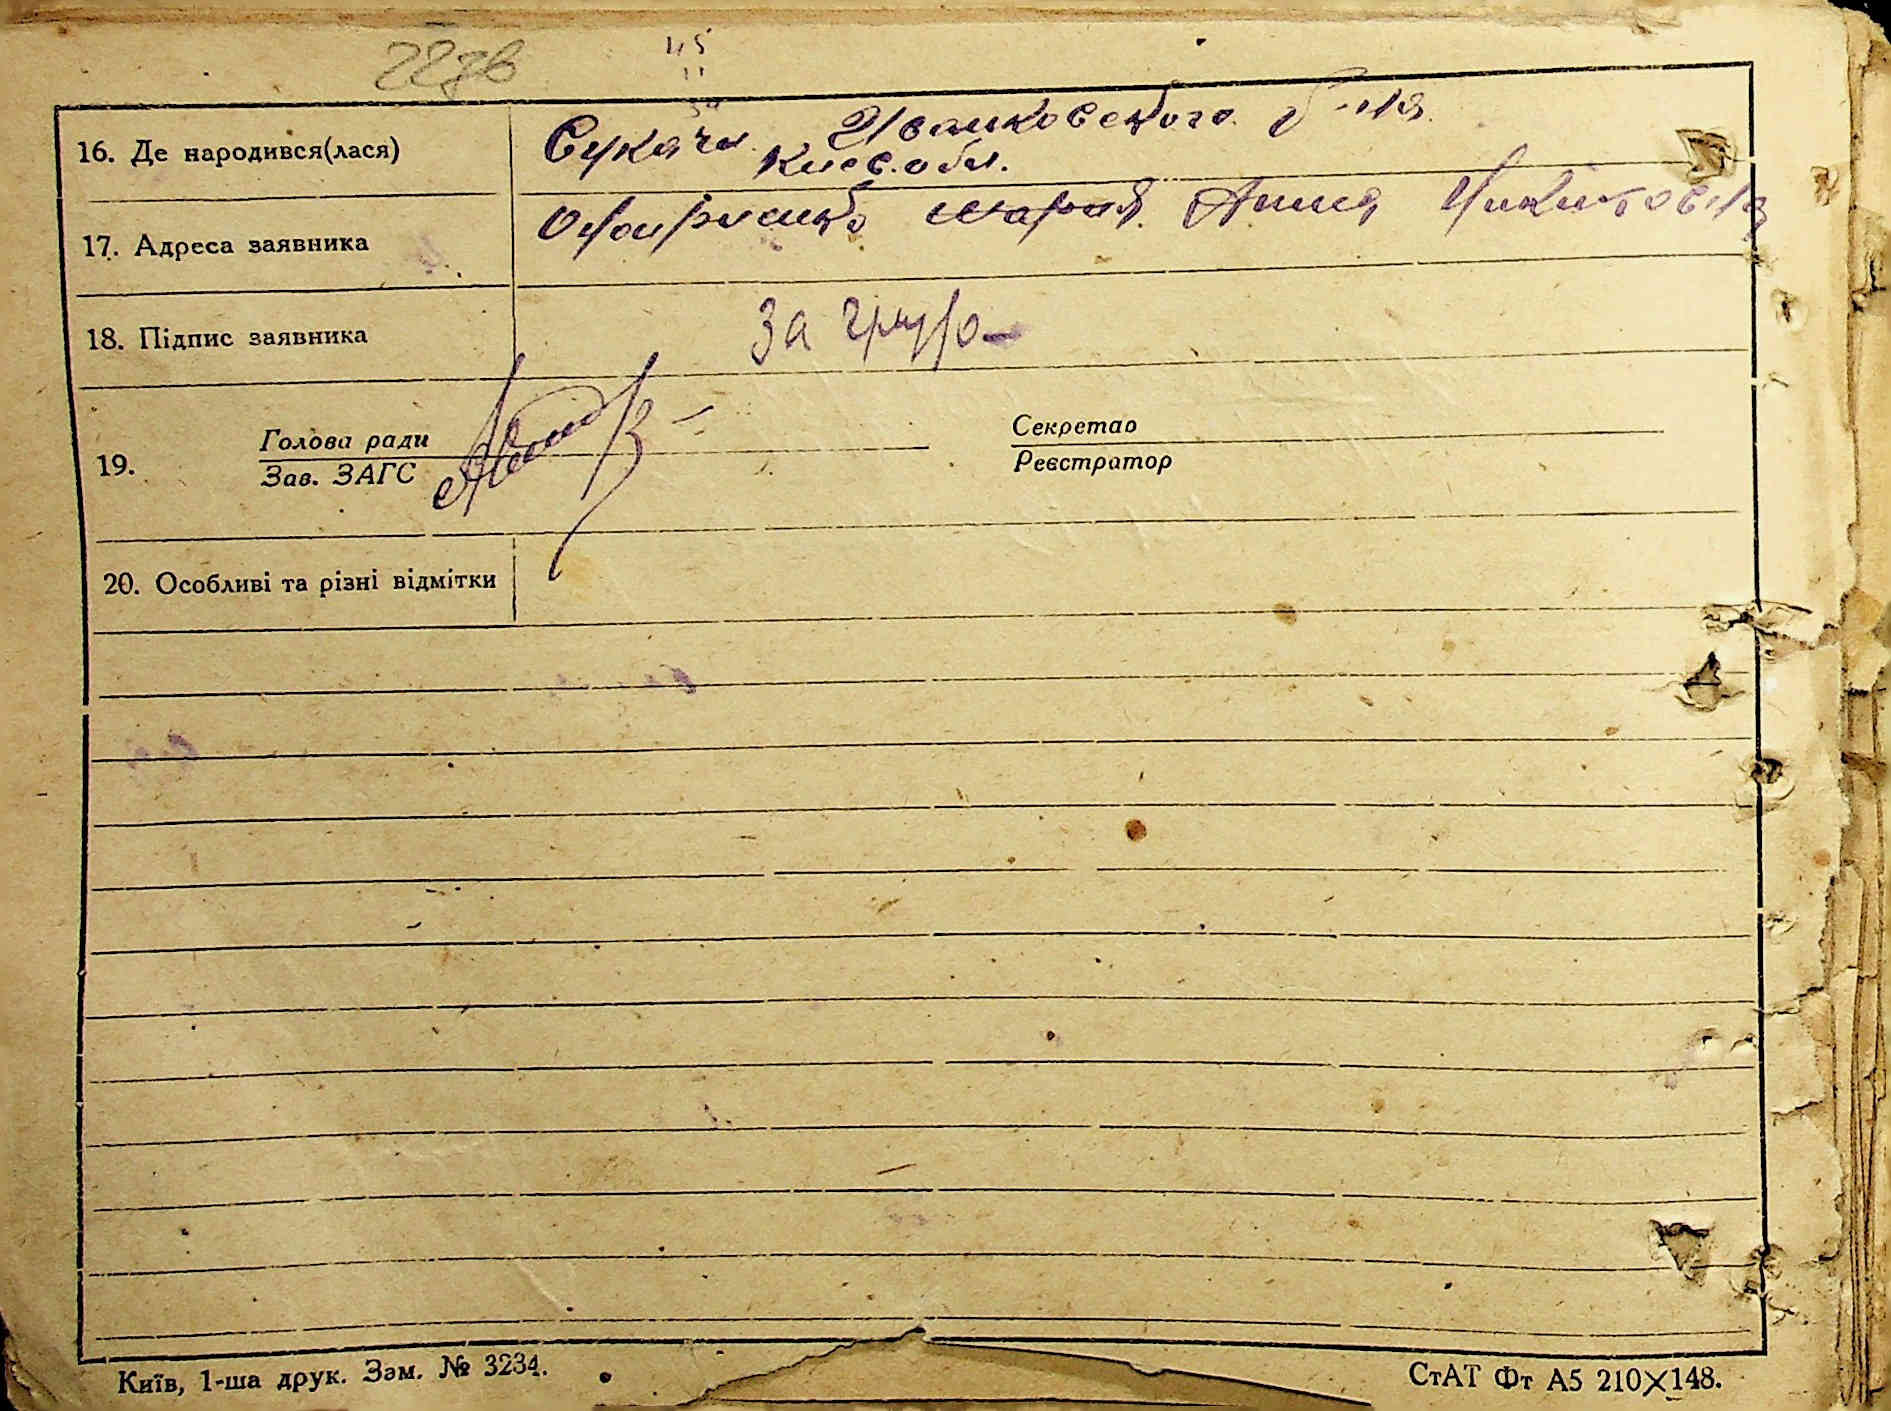 45
11
16. Де народився(лася)
Сукачи Иванковского р-на
Киев. обл.
17. Адреса заявника
Анна Никитовна
18. Підпис заявника
19.
Голова ради
Зав. ЗАГС
Секретар
Реєстратор
20. Особливі та різні відмітки
Київ, 1-ша друк. Зам. № 3234.
СтАТ Фт А5 210×148.